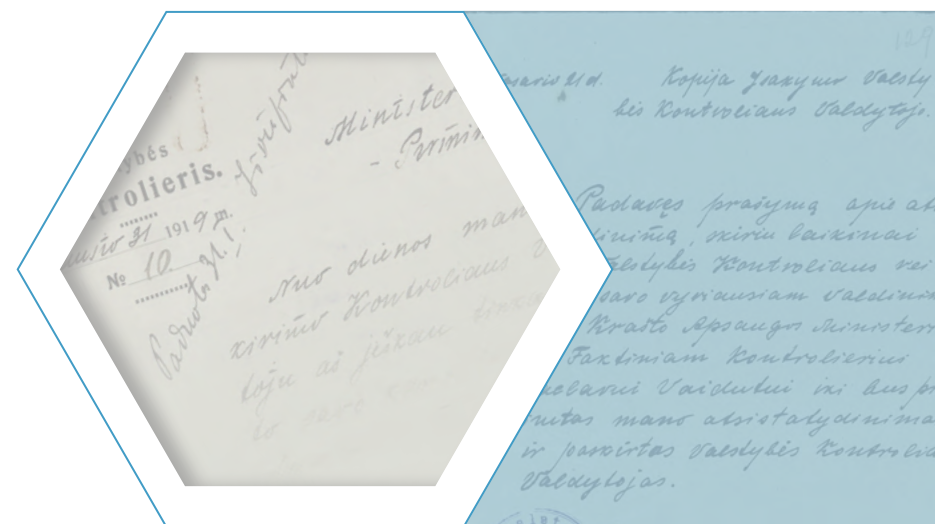 ybės
trolieris.
usio 31 1919 m.
№ 10.
Paduota 31. I.
Minister
- Pirmin
Nuo dienos man
kirimo Kontroliaus V
toju aš ješkau tinka
to savo
129
sausario 31 d. Kopija Įsakymo Valsty
bės Kontroliaus Valdytojo.
Padavęs prašymą apie at
tinimą, skiriu laikinai
alstybės Kontroliaus rei
savo vyriausiam Valdinin
Krašto Apsaugos Ministerr
Faktiniam Kontrolieriui
Vaidutui iki bus pr
imtas mano atsistatydinima
ir paskirtas Valstybės Kontrolia
Valdytojas.